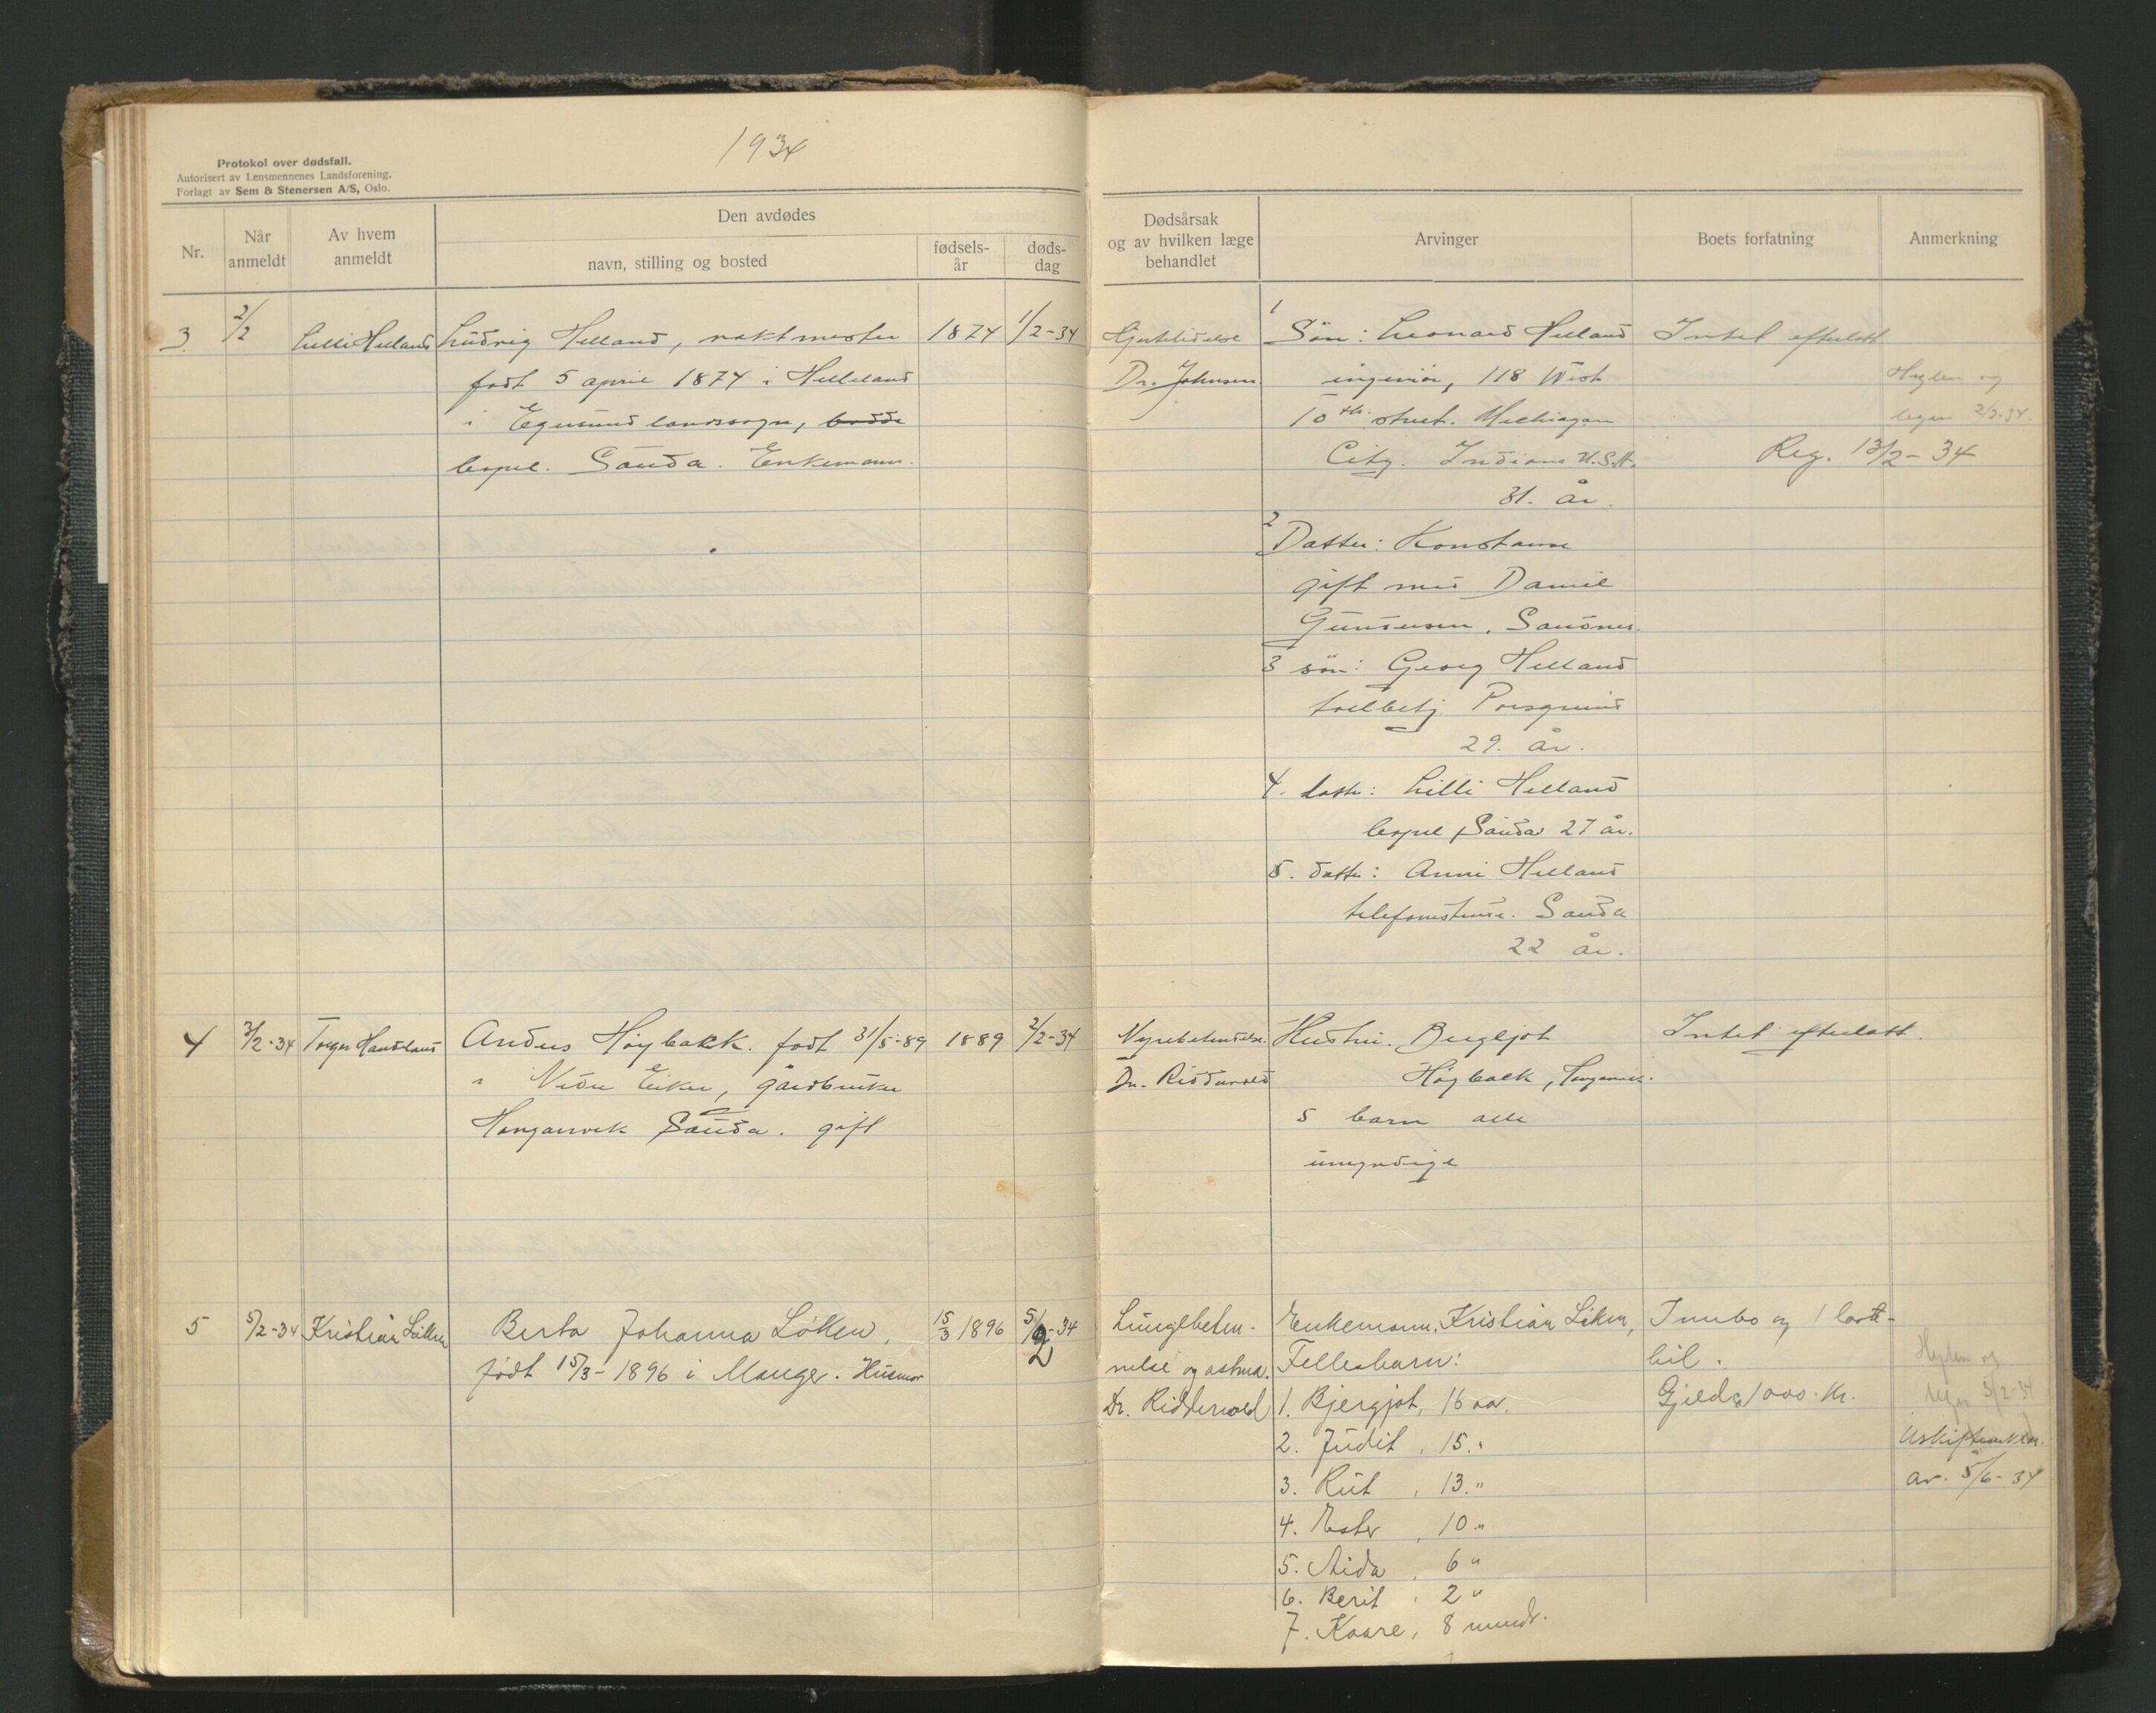 1934
Protokol over dødsfall.
Autorisert av Lensmennenes Landsforening.
Forlagt av Sem & Stenersen A/S, Oslo.
Nr.
Når anmeldt
Av hvem anmeldt
Den avdødes
navn, stilling og bosted
fødsels-år
døds-dag
Dødsårsak og av hvilken læge behandlet
Arvinger
Boets forfatning
Anmerkning
3
2/2
Lilli Helland
Ludvig Helland, vaktmester
født 5 april 1874 i Helleland
i Egersund landssogn, bodde
bopel. Sauda. Enkemann.
1874
1/2-34
Hjertelidelse
Dr. Johnsen
1 Sön: Leonard Helland
ingeniör, 118 West
10th street. Michigan
City. Indiana U.S.A.
31. år.
2 Datter: Konstanse
gift med Daniel
Gundersen, Sandnes.
3 sön: Georg Helland
tollbetj Porsgrund
29. år.
4. datter: Lilli Helland
bopel Sauda 27 år.
5. datter: Anni Helland
telefonistinde. Sauda
22 år.
Intet efterlatt
Reg. 13/2-34
og
2/2-34.
4
3/2-34
Torger Handeland
Anders Høybakk. født 31/5-89
i Nedre Eiker, gårdbruker
Sauda. gift
1889
2/2-34
Nyrebetendelse.
Dr. Ridderwold
Hustru. Bergljot
Høybakk,
5 barn alle
umyndige
Intet efterlatt.
5
5/2-34
Kristian Løken
Berta Johanna Løken,
født 15/3-1896 i Manger. Husmor
15/3 1896
5/2-34
Lungebeten-
nelse og astma.
Dr. Ridderwold
Enkemann, Kristian Løken,
Fellesbarn:
1. Bjergjot, 16 aar.
2. Judit, 15. "
3. Rut, 13. "
4. Ester, 10 "
5. Aida, 6 "
6. Berit, 2 "
7. Kaare, 8 mndr.
Innbo og 1 laste-
bil.
Gjeld 1000 kr.
og
5/2-34
av. 5/6-34